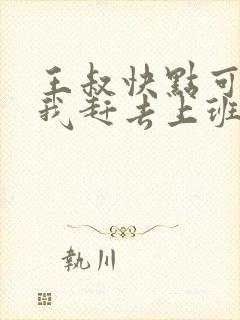 王叔快點可
我赶去上班
執川